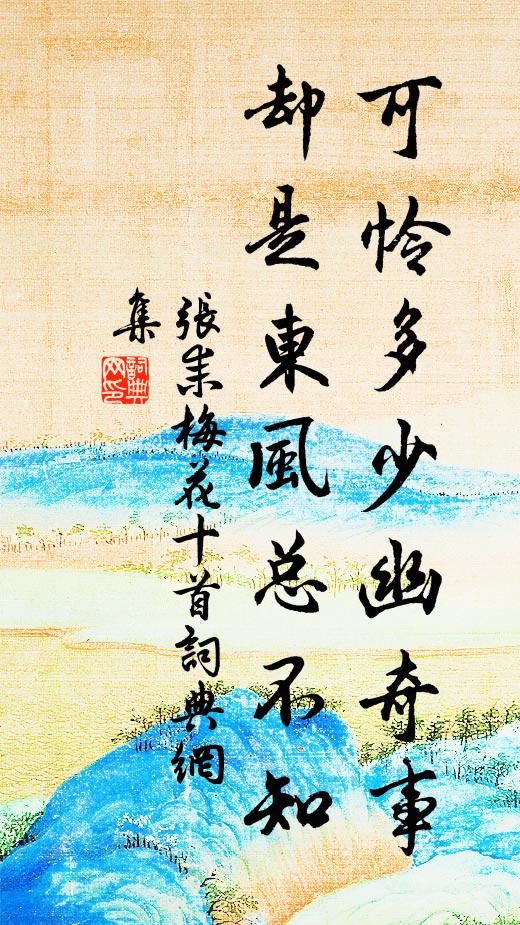 可怜多少幽奇事
却是東風总不知
張耒梅花十首詞典網
集
詞典
网印